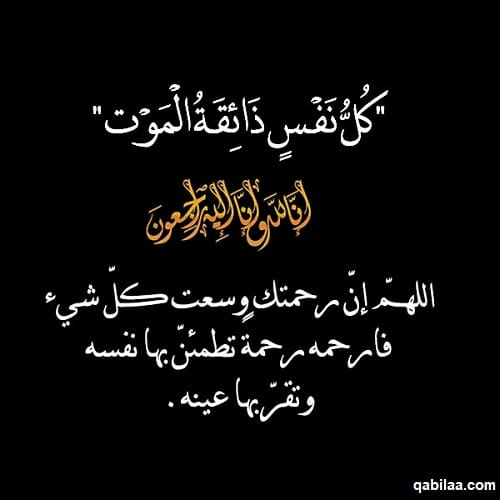 "كُلُّ نَفْسٍ ذَائِقَةُ الْمَوْت"
إنا لله وإنا إليه راجعون
اللهمّ إنّ رحمتك وسعت كلّ شيء
فارحمه رحمةً تطمئنّ بها نفسه
وتقرّ بها عينه .
qabilaa.com